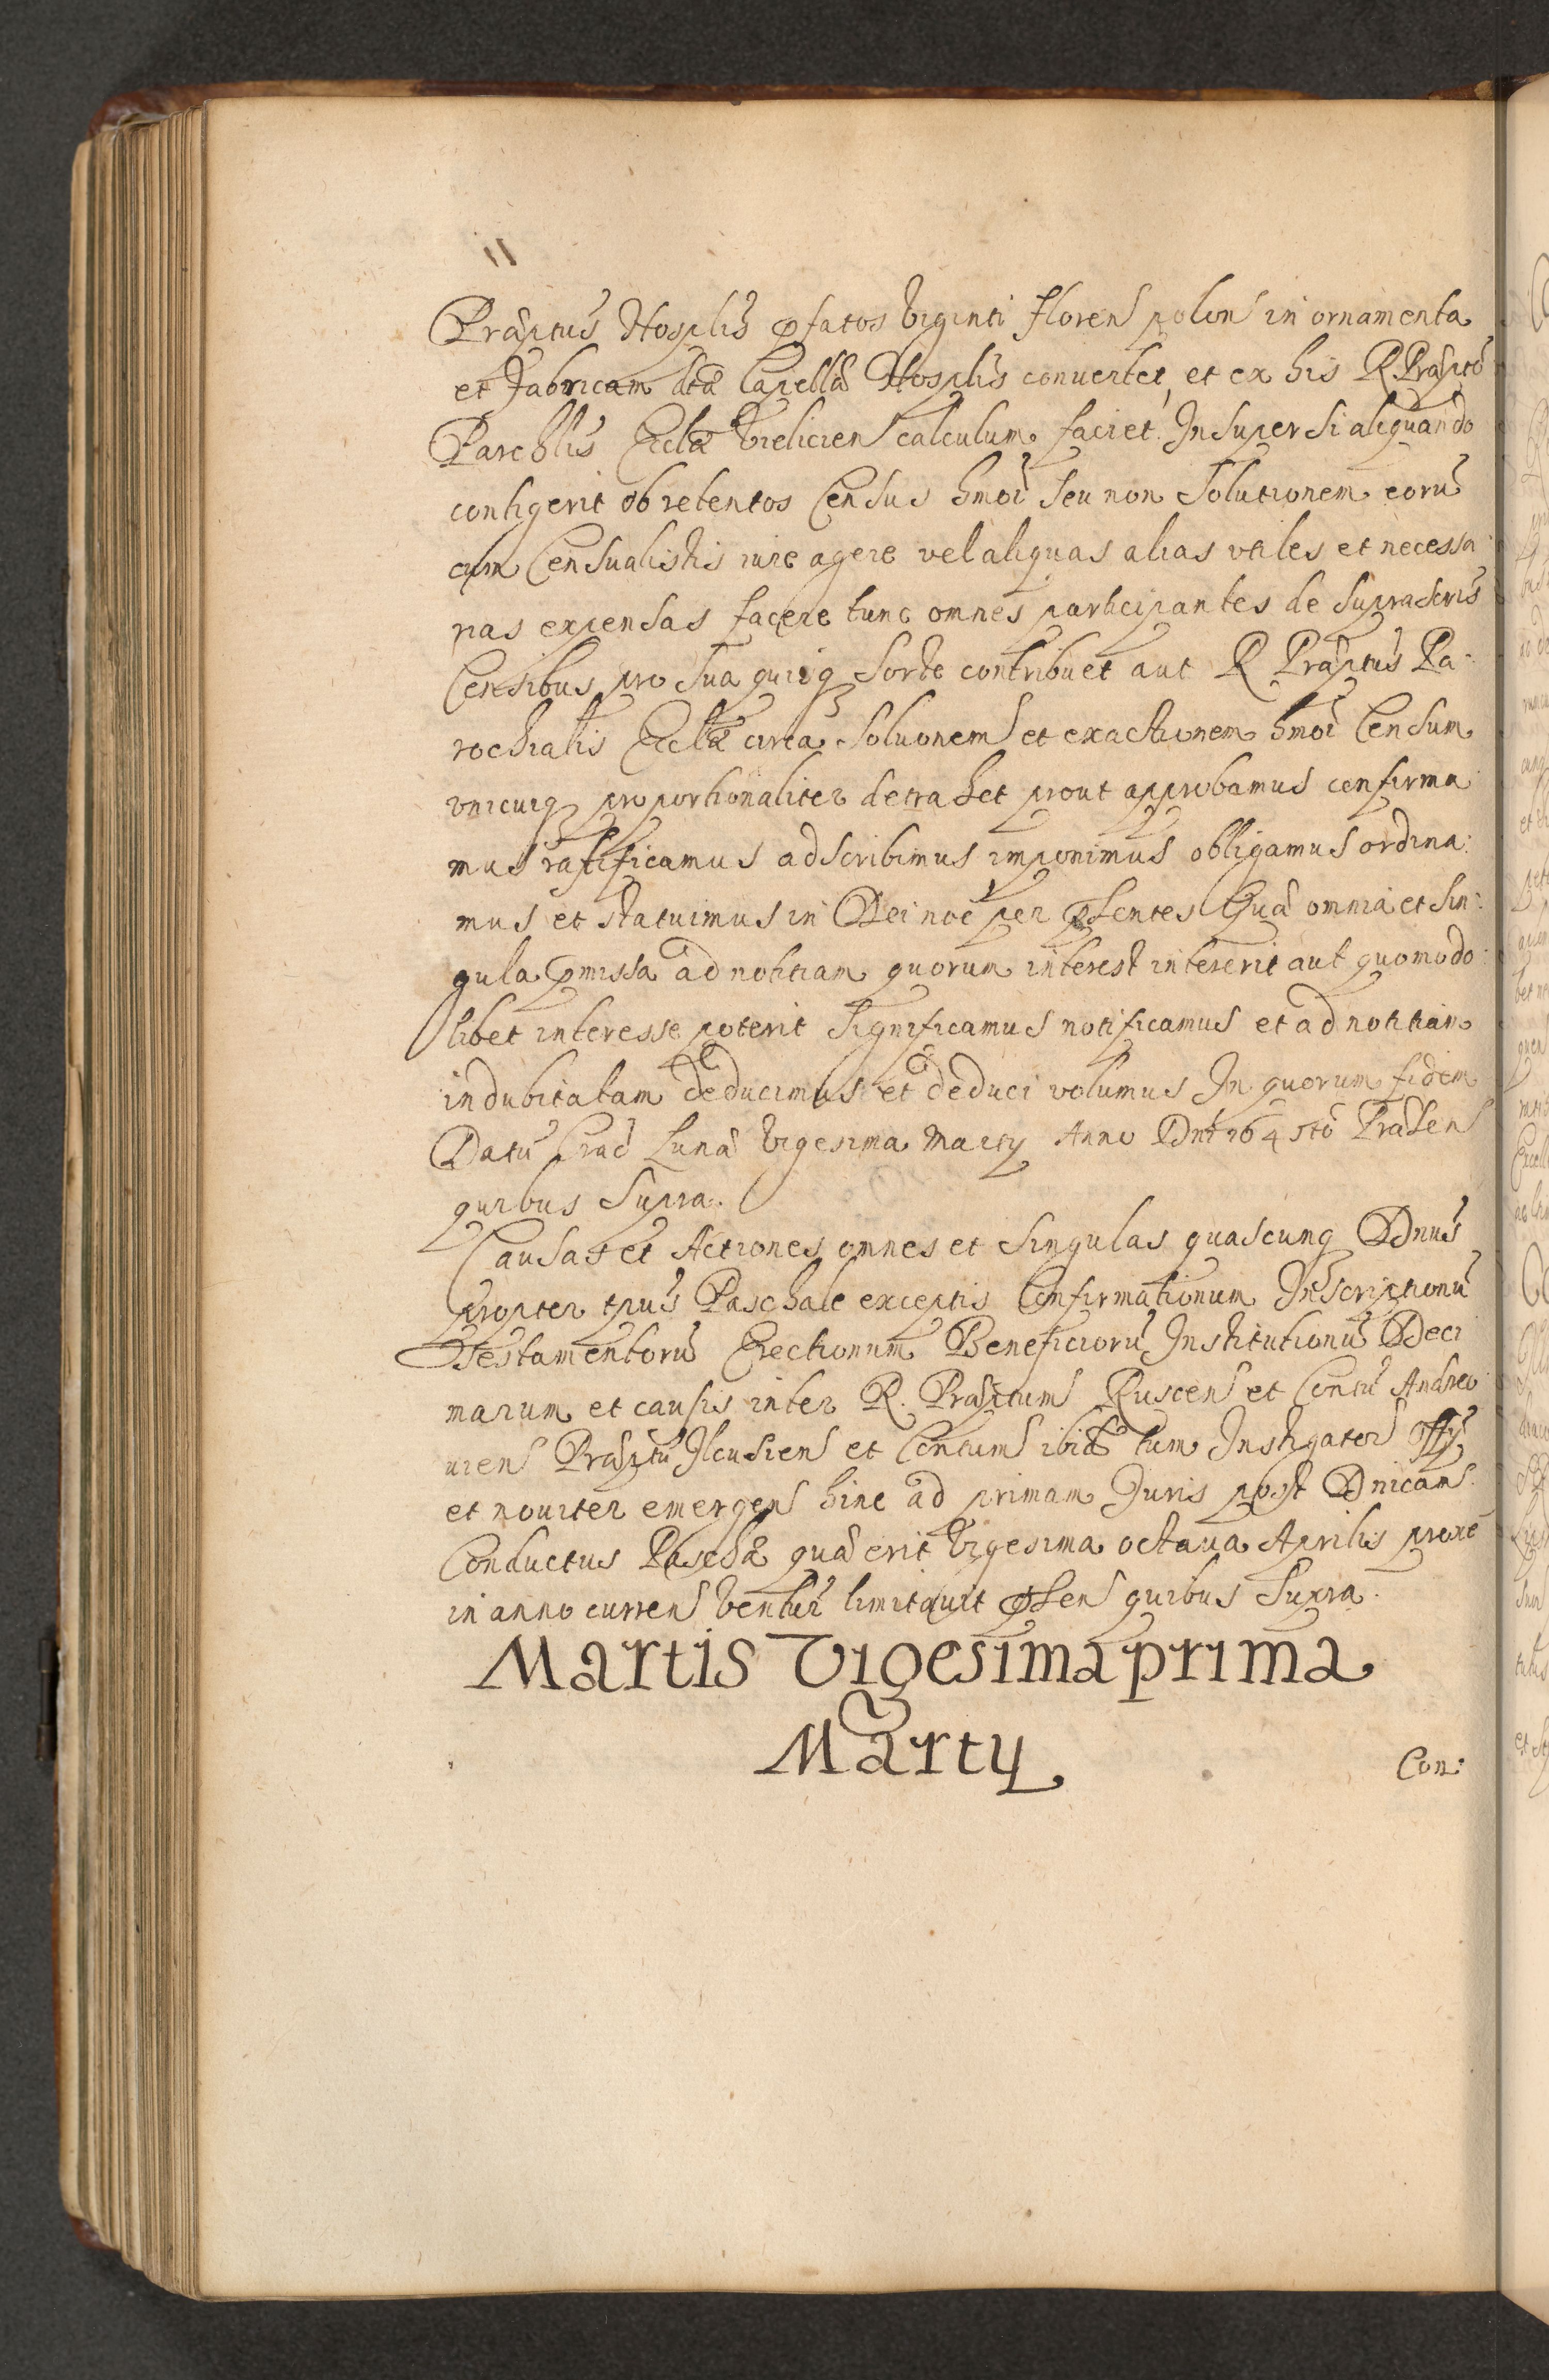 Præptus Hosplis pfatos Viginti floren polon in ornamenta
et Fabricam dtæ Capellæ Hosplis conuertet, et ex his R. Præpto
Parchlis Ecclæ Vielicien calculum faciet. Insuper si aliquando
contigerit ob retentos Census hmoi seu non solutionem eorū
cum Censualistis iure agere vel aliquas alias vtiles et necessa
rias expensas facere tunc omnes participantes de suprascris
Censibus pro sua quisq sorte contribuet aut R. Præptus Pa:
rochialis Ecclæ circa soluonem et exactionem hmoi Censum
vnicuiq proportionaliter detrahet prout approbamus confirma
mus ratificamus adscribimus imponimus obligamus ordina:
mus et statuimus in Dei noē per pſentes Quæ omnia et sin:
gula pmissa ad notitiam quorum interest intererit aut quomodo:
libet interesse poterit significamus notificamus et ad notitiam
indubitatam deducimus et deduci volumus In quorum fidem
Datū Crac Lunæ Vigesima Marty Anno Dni 164 Præsen
quibus supra.
Causas et Actiones omnes et singulas quascunq Dnus
propter tpus Paschale exceptis Confirmationum Inscriptionū
Testamentorū Erectionum Beneficiorū Institutionū Deci
marum et causis inter R. Præptum Ruscen et Contū Andreo
uien Præptū Ilcusien et Contum ibid tum Instigator Offy
et nouiter emergen hinc ad primam Iuris post Dnicam
Conductus Paschæ quæ erit Vigesima octaua Aprilis proxe
in anno curren ventur limitauit pſen quibus supra.
Martis Vigesima prima
Marty
Con: